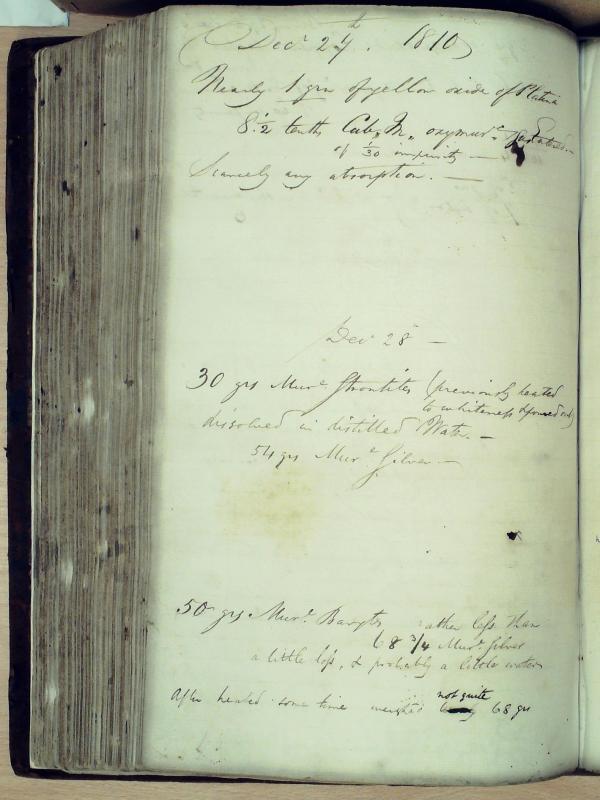 Decr 27th. 1810
Nearly 1 grn of yellow oxide of Platina
8.1/2 tenths Cub. In. oxymurc
of 1/30 impurity —
Scarcely any absorption. —
Decr 28 —
30 grs Murte Strontites (previously heated
to whiteness &
dissolved in distilled Water. —
54 grs Murte Silver —
50 grs Murte Barytes rather less than
68 3/4 Murte Silver
a little loss, & probably a little water
After heated some time weighed not quite 68 grs